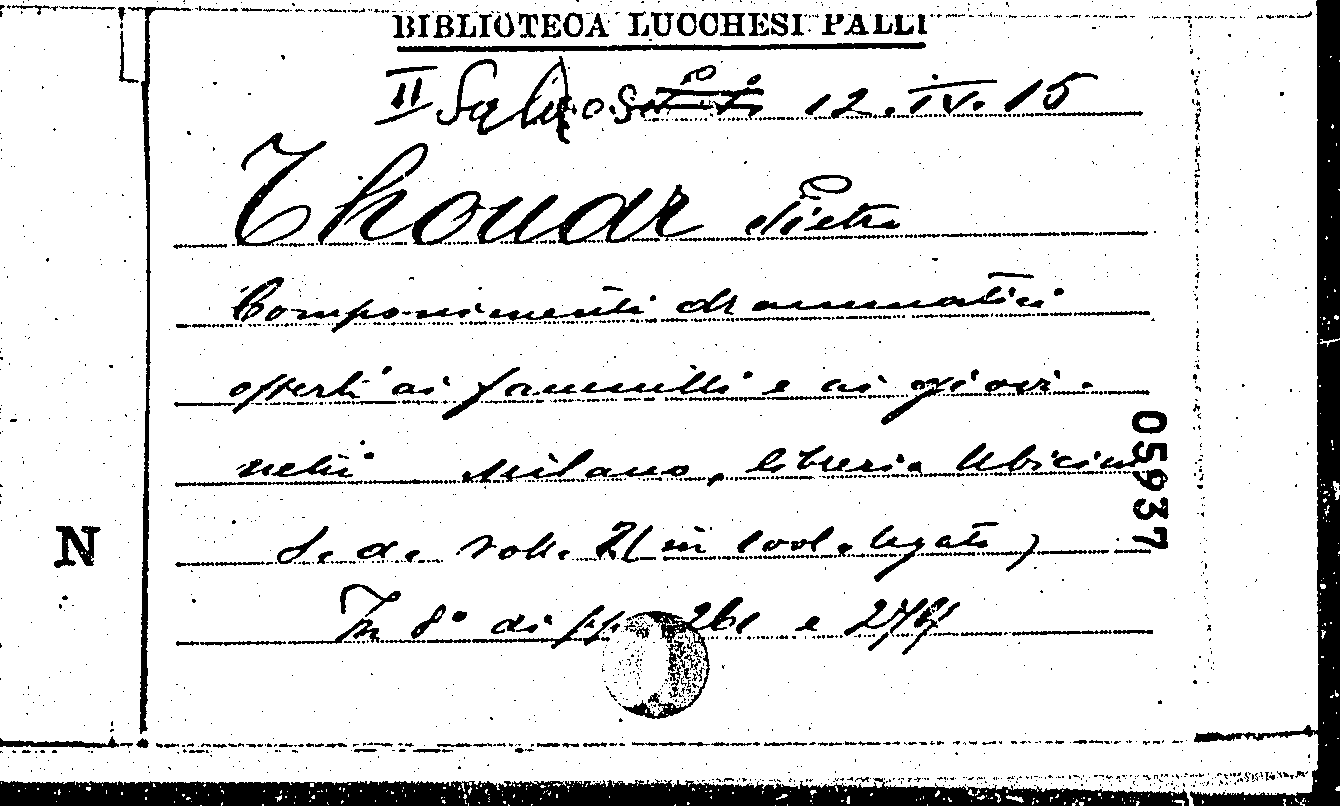 BIBLIOTECA LUCCHESI PALLI
II Sala 12. IV. 15
Thouar Pietro
Componimenti drammatici
offerti ai fanciulli e ai giovi-
netti Milano, libreria Ubicini
05937
N
S. d. voll. 2 (in 1 vol. legato)
In 8° di pp. 261 e 274